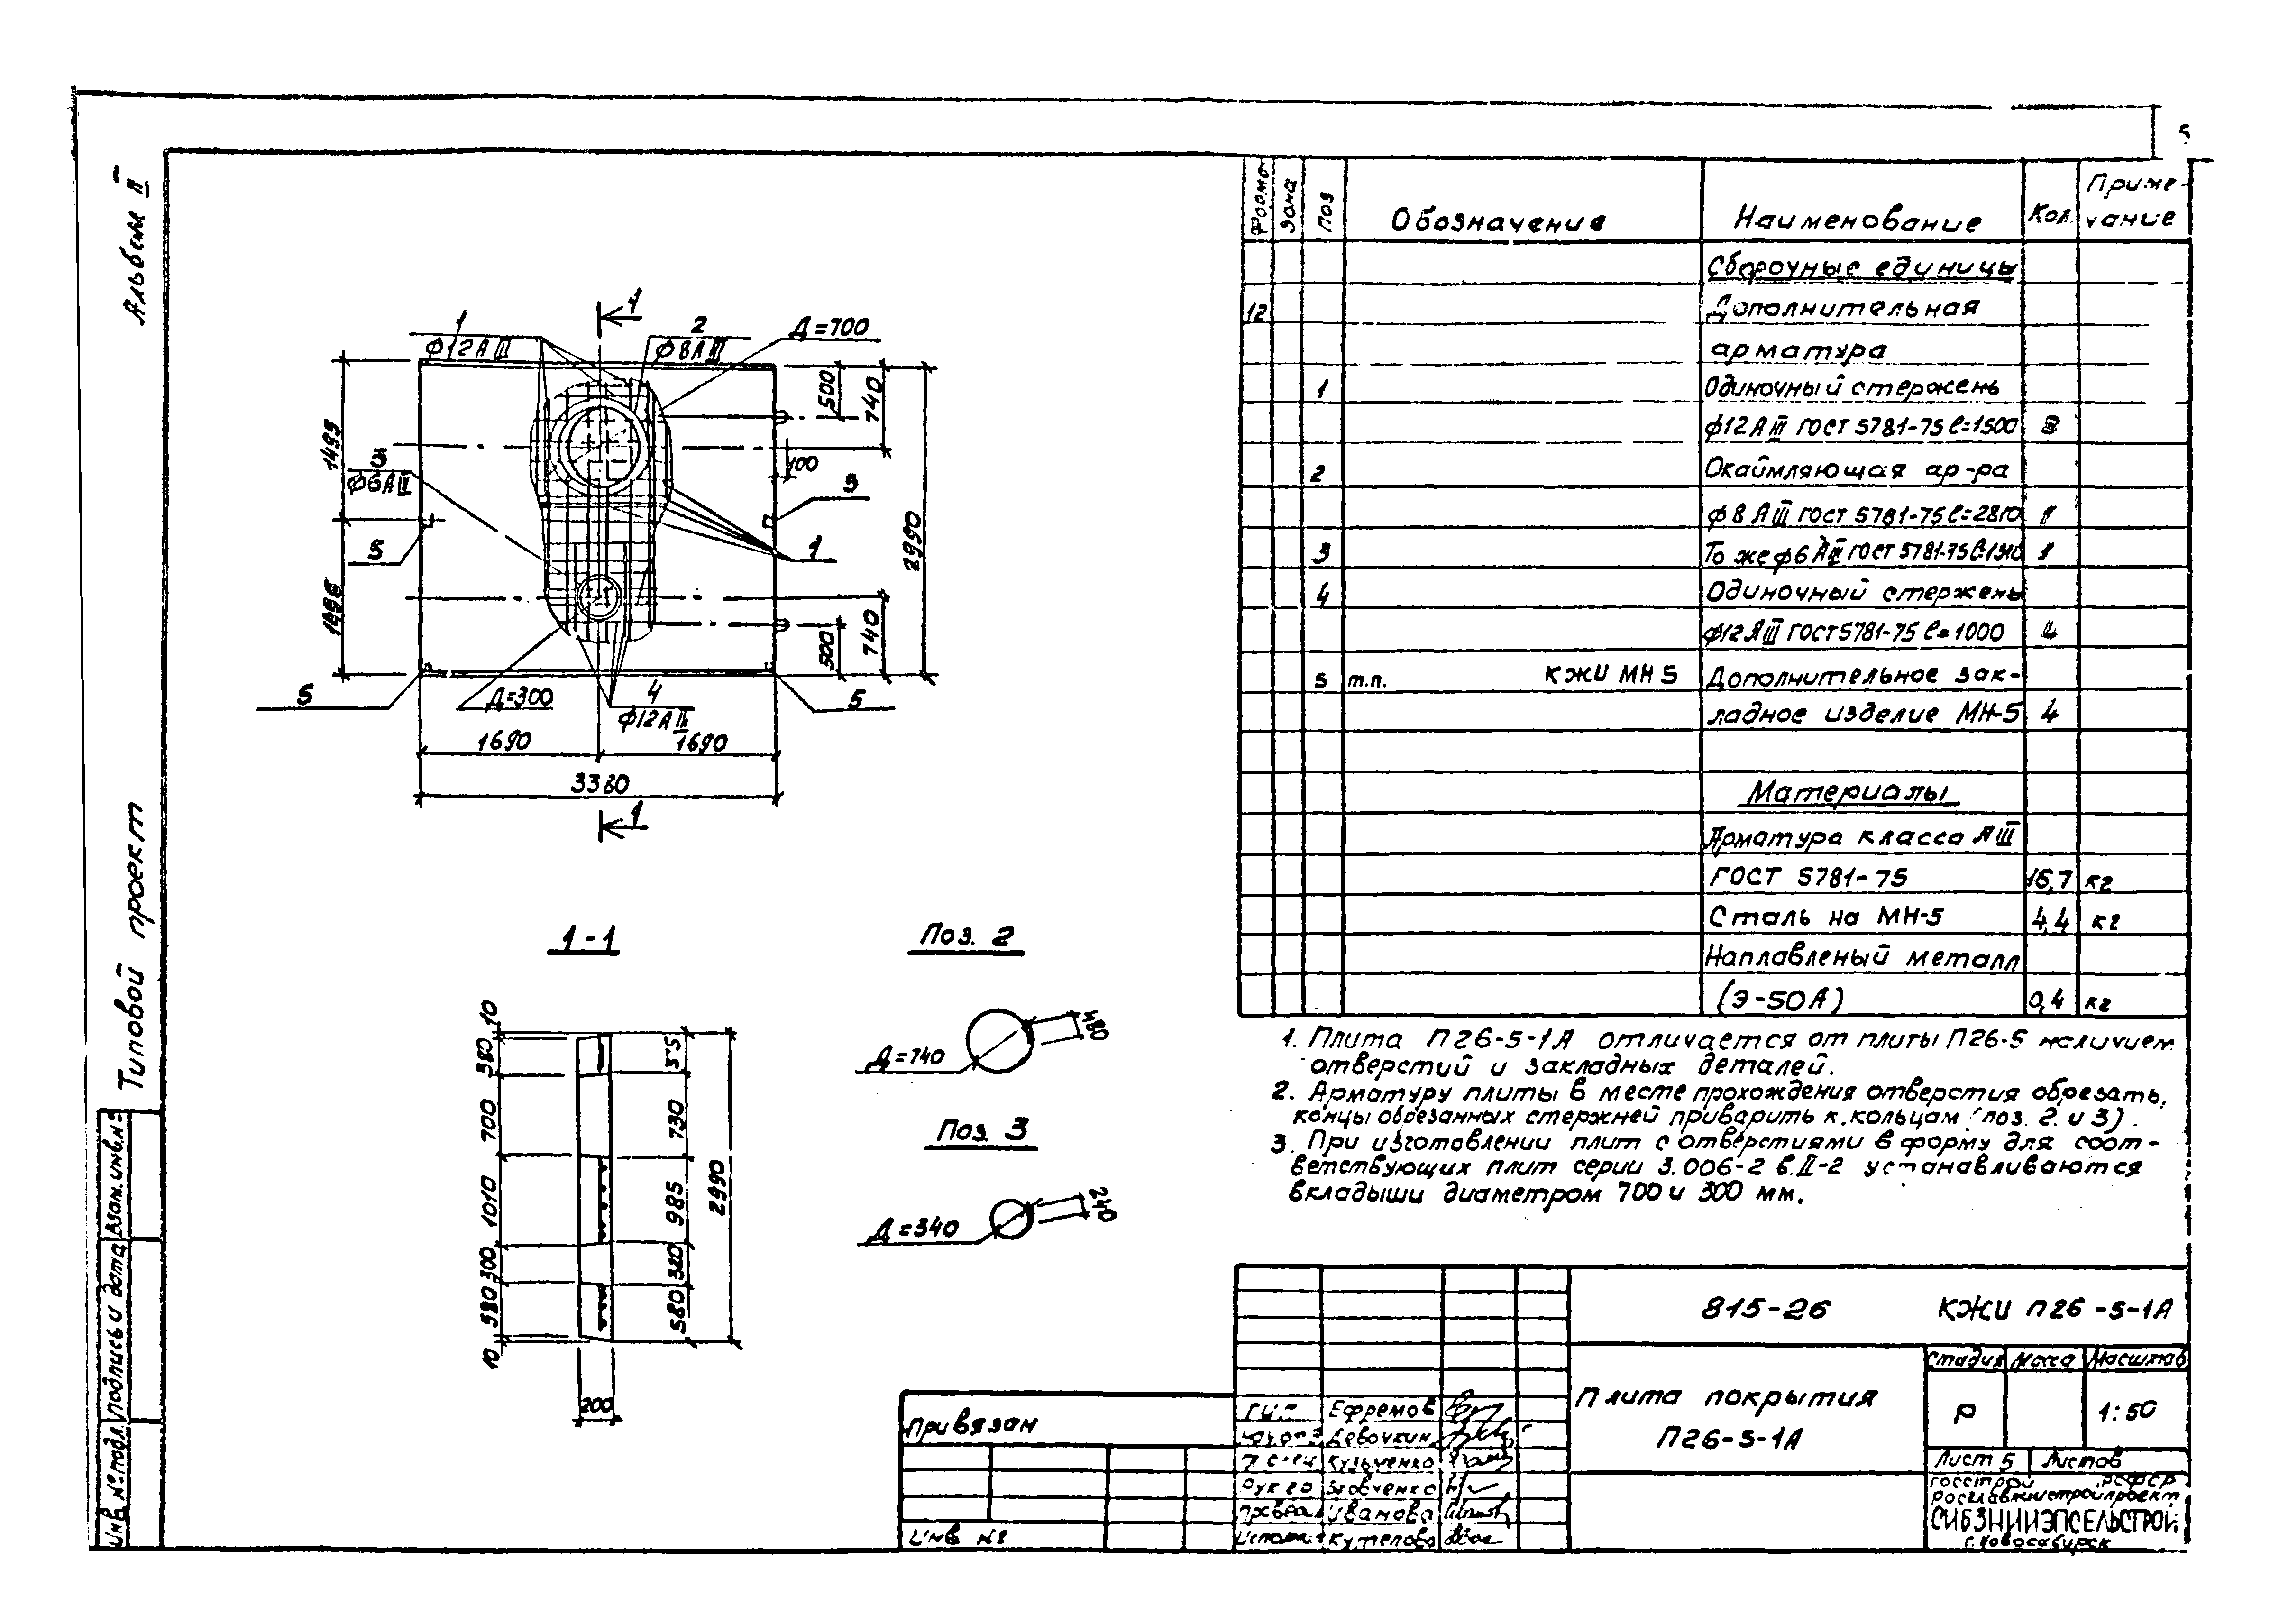 5
Альбом II
Типовой проект
Инв. № подл.
Подпись и дата
Взам. инв. №
1
1
Ф12АIII
2
Ф8АIII
Д=700
500
740
1495
3
Ф6АIII
100
5
5
1
2990
1495
740
500
5
Д=300
4
Ф12АIII
5
1690
1690
3380
1
1-1
10
580
700
1010
300
580
10
730
985
320
580
2990
200
Поз. 2
480
Д=740
Поз 3
240
Д=340
Формат
Зона
Поз
Обозначение
Наименование
Кол.
Приме-
чание
Сборочные единицы
12 Дополнительная
арматура
1 Одиночный стержень
ф12АIII ГОСТ 5781-75 ℓ=1500
2 Окаймляющая ар-ра
ф8АIII ГОСТ 5781-75 ℓ=2810 1
3 То же ф6АIII ГОСТ 5781-75 1
4 Одиночный стержень
ф12АIII ГОСТ 5781-75 ℓ=1000 4
5 т.п. КЖИ МН5 Дополнительное зак-
ладное изделие МН-5 4
Материалы
Арматура класса АIII
ГОСТ 5781-75 16,7 кг
Сталь на МН-5 4,4 кг
Наплавленый металл
(Э-50А) 0,4 кг
1. Плита П26-5-1А отличается от плиты П26-5 наличием
отверстий и закладных деталей.
2. Арматуру плиты в месте прохождения отверстия обрезать,
концы обрезанных стержней приварить к кольцам (поз. 2 и 3).
3. При изготовлении плит с отверстиями в форму для соот-
ветствующих плит серии 3.006-2 в.II-2 устанавливаются
вкладыши диаметром 700 и 300 мм.
815-26 КЖИ П26-5-1А
Плита покрытия
П26-5-1А
Стадия Масса Масштаб
Р 1:50
Лист 5 Листов
Госстрой РСФСР
Росглавниистройпроект
СИБЗНИИЭПСЕЛЬСТРОЙ
г. Новосибирск
Привязан
Инв №
ГИП Ефремов
Нач.отд Девочкин
Гл спец Кузьменко
Рук гр Вовченко
Провери Иванова
Исполни Кутепова